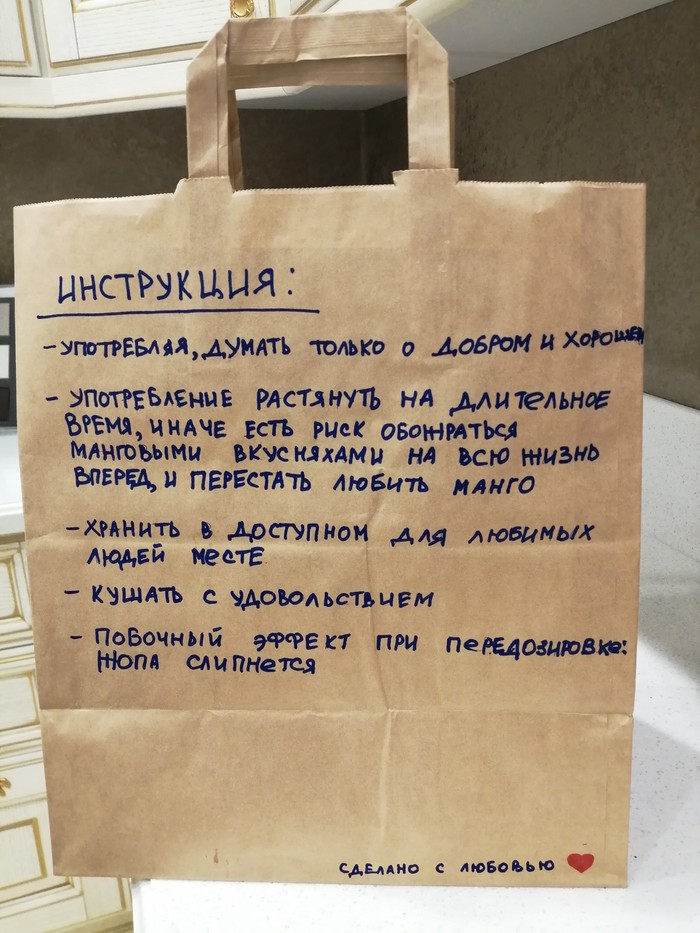 ИНСТРУКЦИЯ:
- УПОТРЕБЛЯЯ, ДУМАТЬ ТОЛЬКО О ДОБРОМ И ХОРОШЕМ
- УПОТРЕБЛЕНИЕ РАСТЯНУТЬ НА ДЛИТЕЛЬНОЕ
ВРЕМЯ, ИНАЧЕ ЕСТЬ РИСК ОБОЖРАТЬСЯ
МАНГОВЫМИ ВКУСНЯХАМИ НА ВСЮ ЖИЗНЬ
ВПЕРЕД, И ПЕРЕСТАТЬ ЛЮБИТЬ МАНГО
- ХРАНИТЬ В ДОСТУПНОМ ДЛЯ ЛЮБИМЫХ
ЛЮДЕЙ МЕСТЕ
- КУШАТЬ С УДОВОЛЬСТВИЕМ
- ПОБОЧНЫЙ ЭФФЕКТ ПРИ ПЕРЕДОЗИРОВКЕ:
ЖОПА СЛИПНЕТСЯ
СДЕЛАНО С ЛЮБОВЬЮ ❤